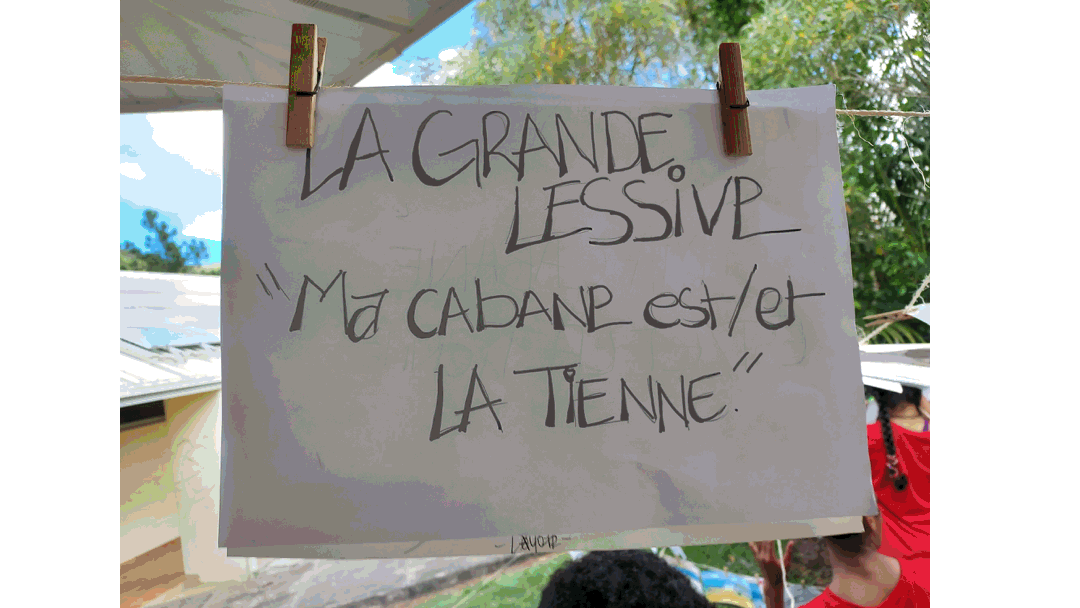 LA GRANDE
LESSIVE
"Ma CAbANE est/et
LA TIENNE".